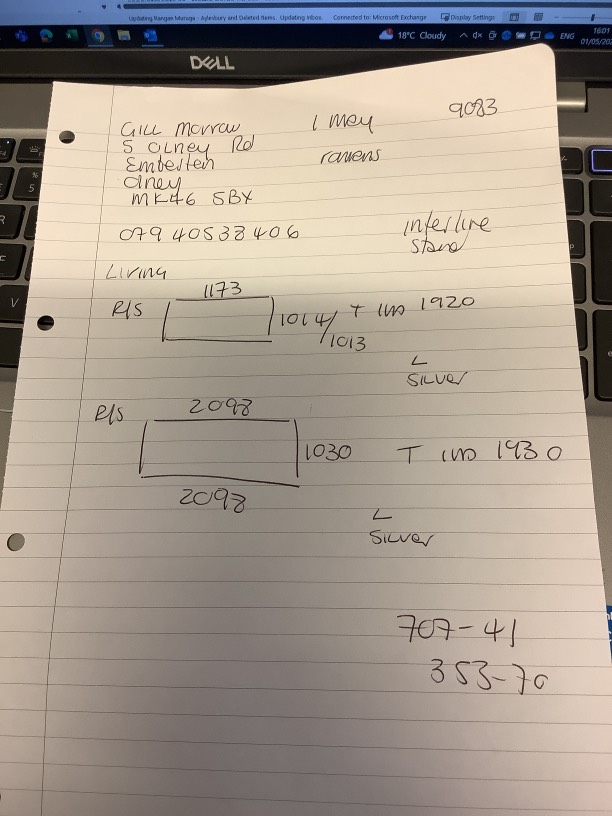 Updating Rangas Muruga - Aylesbury and Deleted Items. Updating Inbox. Connected to: Microsoft Exchange Display Settings
18°C Cloudy ENG 16:01
01/05/202
DELL
Gill Morrow 1 May 9083
5 Olney Rd
ravens
Olney
MK46 5BX
079 40538406 interline
Living
1173
R/S 1014/ T 1920
1013
L
Silver
R/S 2098
1030 T 1930
2098
L
Silver
707-41
353-70